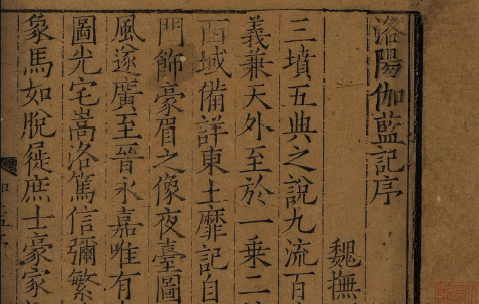 洛陽伽藍記序
魏撫
三墳五典之說九流百
義兼天外至於一乗二
西域備詳東土靡記自
門飾豪眉之像夜臺圖
風遂廣至晉永嘉唯有
圖光宅嵩洛篤信彌繁
象馬如脫屣庶士豪家